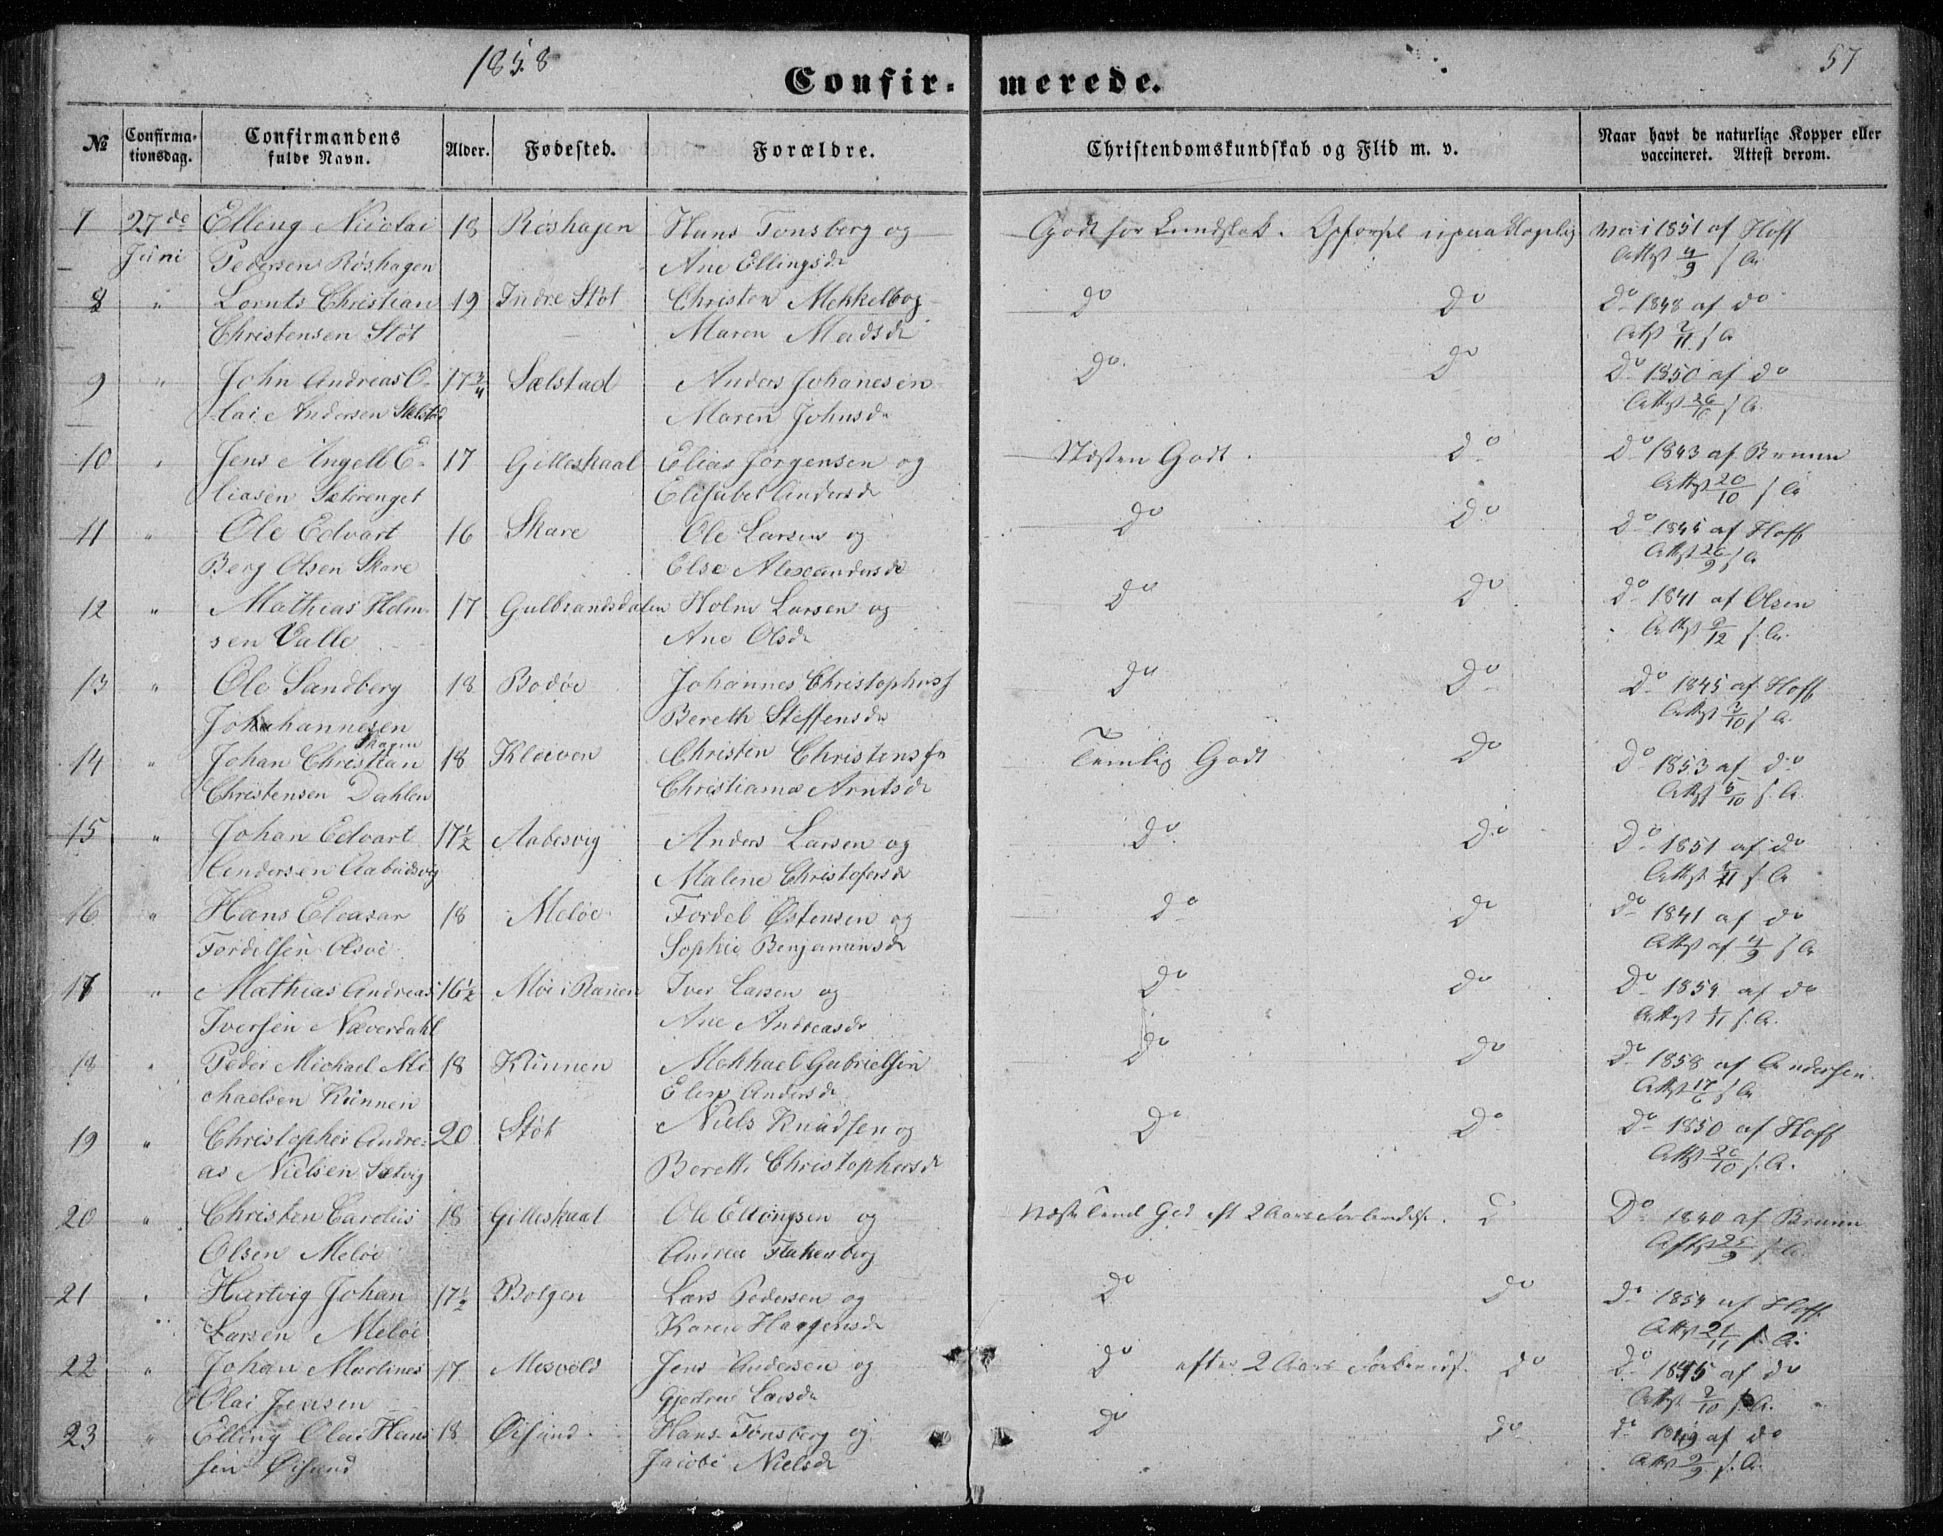 1858
57
Confir- merede.
№
Confirma-
tionsdag.
Confirmandens
fulde Navn.
Alder.
Fødested.
Forældre.
Christendomskundskab og Flid m. v.
Naar havt de naturlige Kopper eller
vaccineret. Attest derom.
7 27de Elling Nicolai 18 Røshagen Hans Tønsberg og Godt for Kundskab. Opførsel upaaklagelig 1851 af Hoff
Juni Pedersen Røshagen Ane Ellingsdr Attest 4/9 s. A.
8 " Lornts Christian 19 Indre Støt Christen Mekkelb og do do Do 1848 af do
Christensen Støt Maren Madsdr Attst 2/11 s. A
9 " John Andreas O- 17 3/4 Sælstad Anders Johanesen do do Do 1850 af do
lai Andersen Sælstad Maren Johnsdr Attest 26/10 s. A.
10 " Jens Angell E- 17 Gilleskaal Elias Jørgensen og Næsten Godt. do Do 1843 af Bruun
liasen Sæterenget Elisabet Andersdr Attest 20/10 s. A
11 " Ole Edvart 16 Skare Ole Larsen og do do Do 1845 af Hoff
Berg Olsen Skare Else Alexandersdr Attest 26/9 s. A
12 " Mathias Holm- 17 Gulbrandsdalen Holm Larsen og do do Do 1841 af Olsen
sen Valle Ane Olsdr Attest 9/12 s. A.
13 " Ole Sandberg 18 Bodøe Johannes Christophers do do Do 1845 af Hoff
Johahannesen Bereth Steffensdr Attest 2/10 s. A.
Skagen
14 " Johan Christian 18 Kleiven Christen Christensen Temlig Godt do Do 1853 af do
Christensen Dahlen Christiana Arntsdr Attest 5/10 s. A.
15 " Johan Edvart 17 1/2 Aabesvig Anders Larsen og do do Do 1851 af do
Andersen Aabudsvig Malene Christofersdr Attest 2/11 s. A
16 " Hans Eleasar 18 Meløe Tordel Østensen og do do Do 1841 af do
Tordelsen Ølsøe Sophie Benjaminsdr Attest af 4/9 s. A
17 " Mathias Andreas 16 1/2 Møe i Ranen Iver Larsen og do do Do 1854 af do
Iversen Næverdahl Ane Andreasdr Attest 1/11 s. A.
18 " Peder Michael Mi- 18 Kunnen Mekhael Gabrielsen do do Do 1858 af Andersen
chaelsen Kunnen Elen Andersdr Attest 17/6 s. A
19 " Christopher Andre- 20 Støt Niels Knudsen og do do Do 1850 af Hoff
as Nielsen Sætvig Bereth Christophersdr Attest 20/10 s. A.
20 " Christen Carolus 18 Gilleskaal Ole Ellingsen og Næsten Teml. God eft 2 Aars Forberedelse. do Do 1840 af Bruun
Olsen Meløe Andrea Flakenberg Attest 25/9 s. A.
21 " Hartvig Johan 17 1/2 Bolgen Lars Pedersen og do do Do 1854 af Hoff
Larsen Meløe Karen Haagensdr Attest 21/11 s. A.
22 " Johan Martines 17 Mesvold Jens Andersen og do efter 2 Aars Forbered. do Do 1845 af do
Olai Jensen Gjertru Larsdr Attest 2/10 s. A.
23 " Elling Olai Han- 18 Øisund Hans Tønsberg og do do do 1849 af do
sen Øisund Jacobe Nielsdr Attst 2/9 s. A.